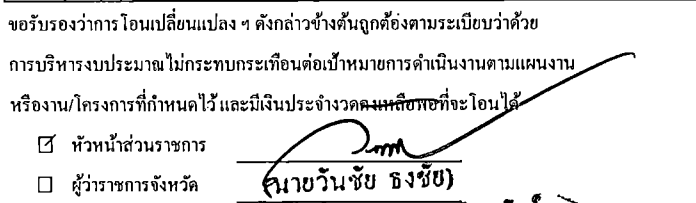 ขอรับรองว่าการโอนเปลี่ยนแปลง ฯ ดังกล่าวข้างต้นถูกต้องตามระเบียบว่าด้วย
การบริหารงบประมาณไม่กระทบกระเทือนต่อเป้าหมายการดำเนินงานตามแผนงาน
หรืองาน/โครงการที่กำหนดไว้ และมีเงินประจำงวดคงเหลือพอที่จะโอนได้
☑ หัวหน้าส่วนราชการ
☐ ผู้ว่าราชการจังหวัด (นายวันชัย ธงชัย)